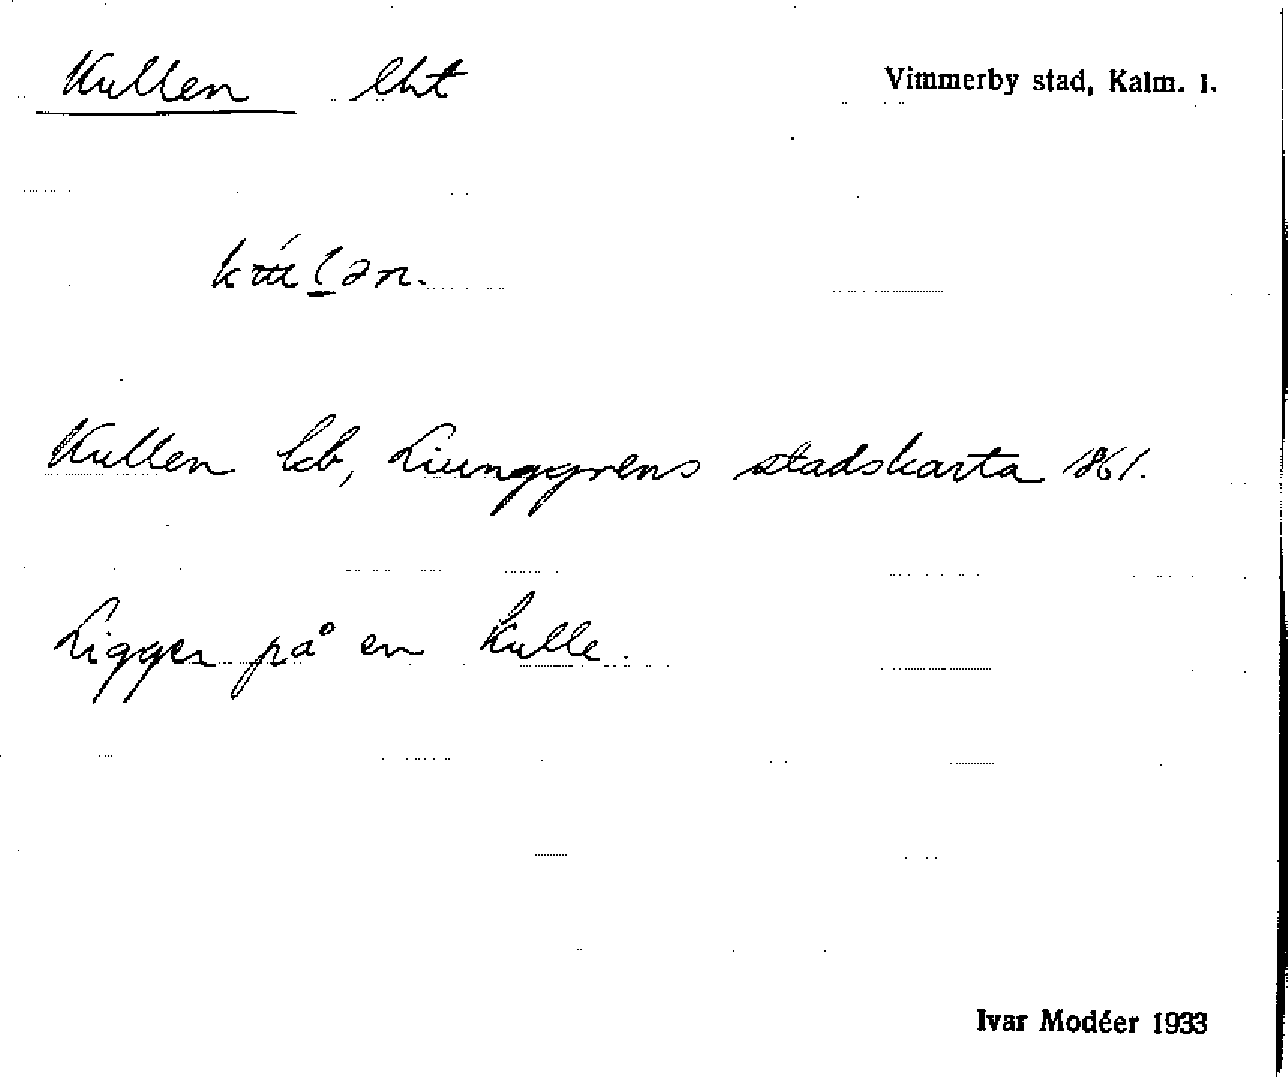 Kullen lht Vimmerby stad, Kalm. l.
Kullen lcb, Liunggrens stadskarta 1861.
Ligger på en kulle.
Ivar Modéer 1933